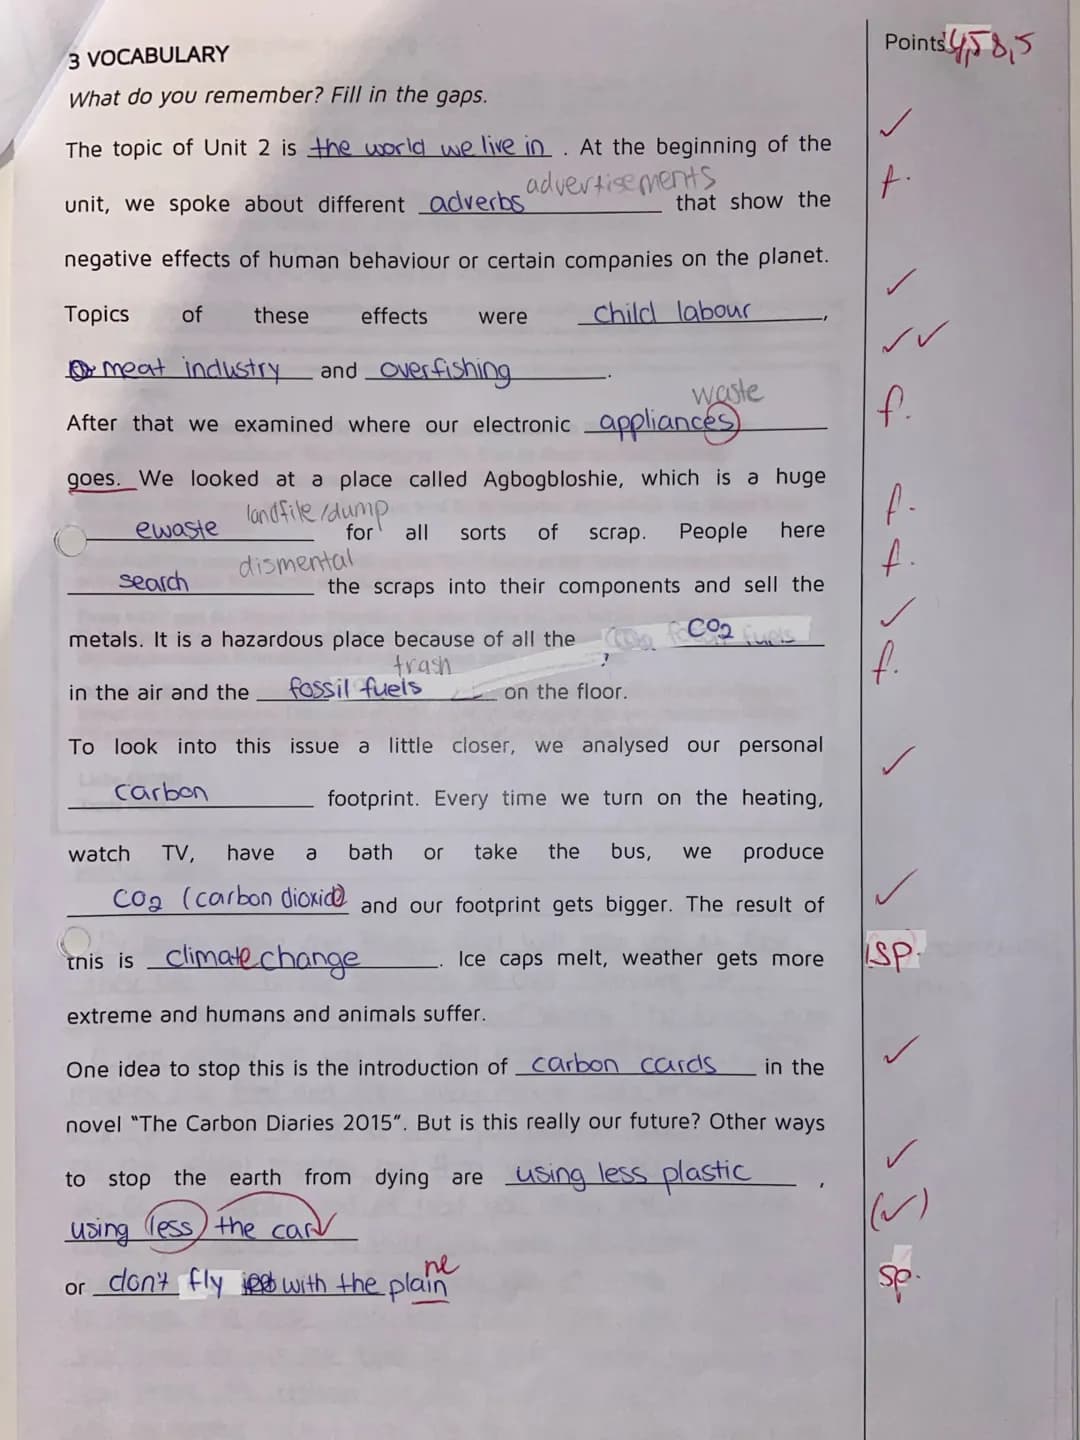 3 VOCABULARY
Points 4,5 8,5
What do you remember? Fill in the gaps.
The topic of Unit 2 is the world we live in . At the beginning of the ✓
advertisements
unit, we spoke about different adverbs that show the f.
negative effects of human behaviour or certain companies on the planet.
Topics of these effects were child labour , ✓
meat industry and overfishing . ✓✓
waste
After that we examined where our electronic appliances f.
goes. We looked at a place called Agbogbloshie, which is a huge
landfile/dump
ewaste for all sorts of scrap. People here f.
dismental
search the scraps into their components and sell the f.
metals. It is a hazardous place because of all the CO2 ✓
trash ?
in the air and the fossil fuels on the floor. f.
To look into this issue a little closer, we analysed our personal
carbon footprint. Every time we turn on the heating, ✓
watch TV, have a bath or take the bus, we produce
CO2 (carbon dioxide and our footprint gets bigger. The result of ✓
this is climate change . Ice caps melt, weather gets more sp.
extreme and humans and animals suffer.
One idea to stop this is the introduction of carbon cards in the ✓
novel "The Carbon Diaries 2015". But is this really our future? Other ways
to stop the earth from dying are using less plastic , ✓
using less the car (✓)
ne
or don't fly with the plain sp.